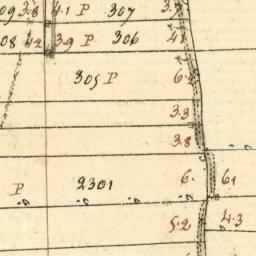 09 3.8 4.1 P 307
08 42 39 P 306
305 P
3.3
3.8
P 2301 6. 61
5.2 4.3